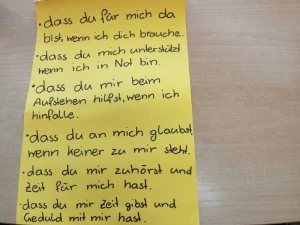 • dass du für mich da
bist, wenn ich dich brauche.
• dass du mich unterstützt
wenn ich in Not bin.
• dass du mir beim
Aufstehen hilfst, wenn ich
hinfalle.
• dass du an mich glaubst,
wenn keiner zu mir steht.
• dass du mir zuhörst und
Zeit für mich hast.
• dass du mir Zeit gibst und
Geduld mit mir hast.